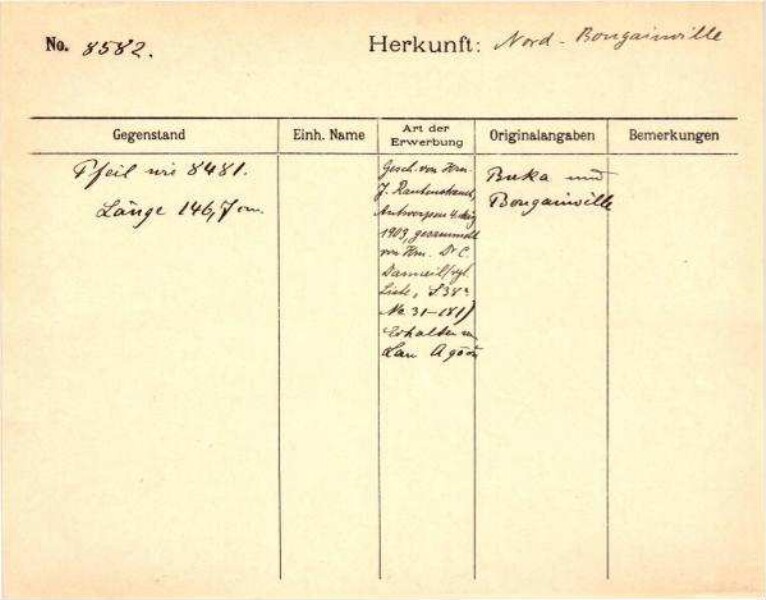 No. 8582.
Herkunft: Nord-Bougainville
Gegenstand
Einh. Name
Art der Erwerbung
Originalangaben
Bemerkungen
Pfeil wie 8481.
Länge 146,7 cm.
Gesch. von Hrn.
J. Rautenstrauch,
Antwerpen 4. Aug.
1909, gesammelt
von Hrn. Dr C.
(vgl.
Liste, S 38a
No 31-181)
Erhalten
Lau
Buka und
Bougainville